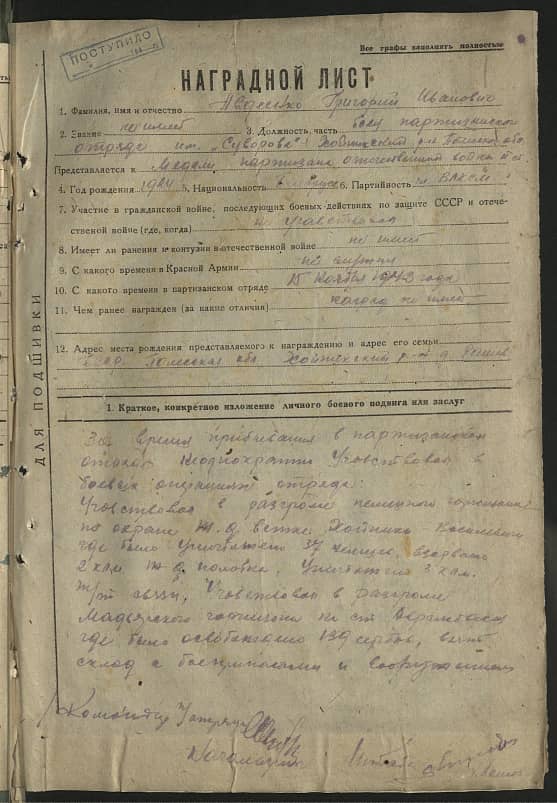 ПОСТУПИЛО
Все графы заполнять полностью
НАГРАДНОЙ ЛИСТ
1. Фамилия, имя и отчество Григорий Иванович
2. Звание не имеет 3. Должность, часть боец партизанского
отряда им. "Суворова" Хойникский р-н Полесск. обл.
Представляется к Медали партизана отечественной войны
4. Год рождения 1924 5. Национальность 6. Партийность чл ВЛКСМ
7. Участие в гражданской войне, последующих боевых действиях по защите СССР и отече-
ственой войне (где, когда) не участвовал
8. Имеет ли ранения и контузии в отечественной войне не имеет
9. С какого времени в Красной Армии не служил
10. С какого времени в партизанском отряде 15 ноября 1943 года
11. Чем ранее награжден (за какие отличия) наград не имеет
12. Адрес места рождения представляемого к награждению и адрес его семьи
Полесская обл. Хойникский р-н д.
ДЛЯ ПОДШИВКИ
I. Краткое, конкретное изложение личного боевого подвига или заслуг
За время прибивания в партизанском
отряде Участвовал в
боевых операциях отряда:
Участвовал в разгроме немецкого гарнизона
по охране ж.д. ветки Хойники Василевичи
где было Уничтожено 37 немцев, взорвано
2 клм ж д полотна, Уничтожено 3 клм.
связи, Участвовал в разгроме
Мадьярского гарнизона на ст Аврамовская
где было освобождено 139 сербов, взят
склад с боеприпасами и вооружением
Командир
Начальник Штаба